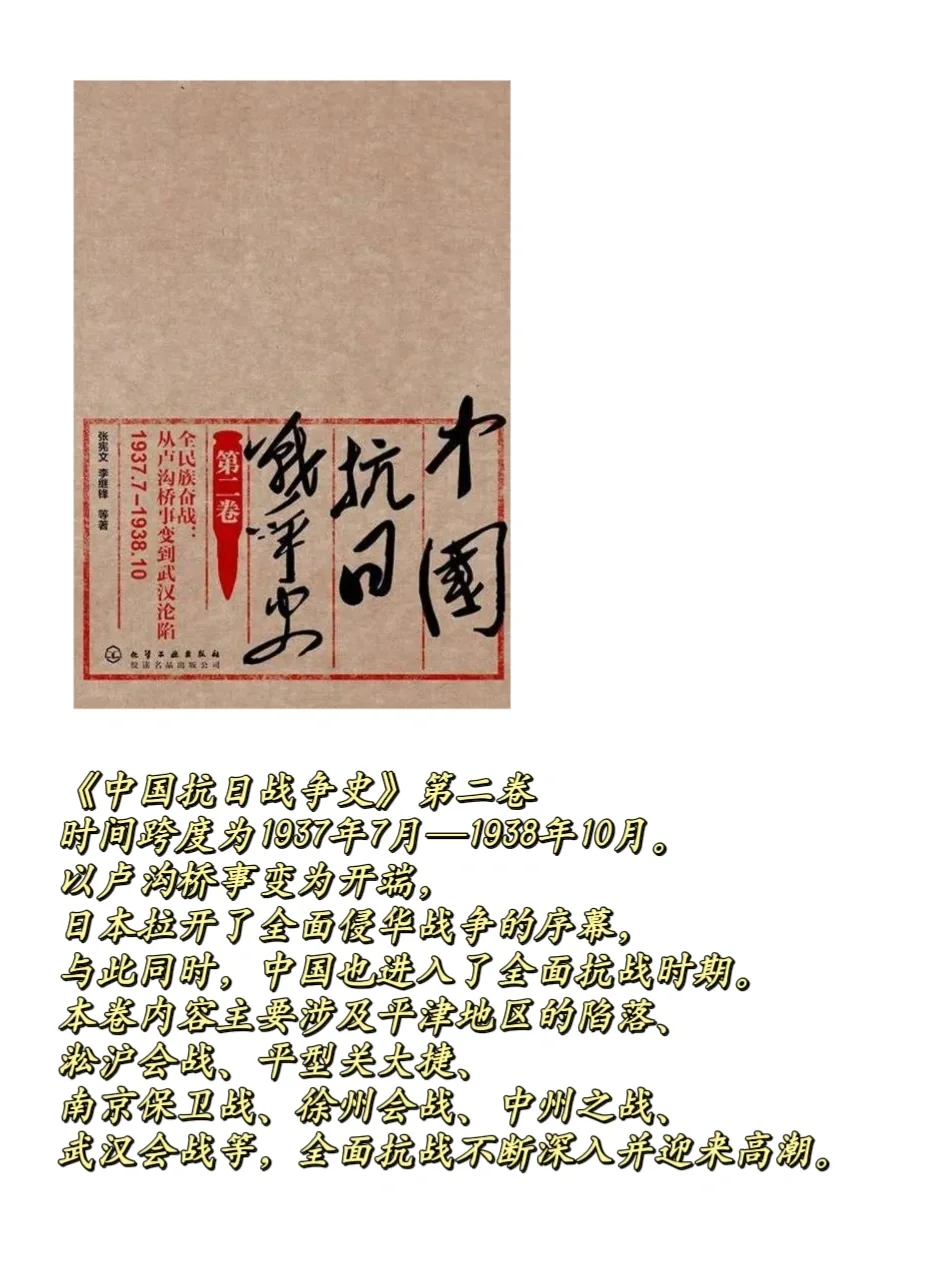 中國
抗日
戰爭史
第二卷
全民族奋战：
从卢沟桥事变到武汉沦陷
1937.7-1938.10
张宪文 李继锋 等著
化学工业出版社
悦读名品出版公司
《中国抗日战争史》第二卷
时间跨度为1937年7月—1938年10月。
以卢沟桥事变为开端，
日本拉开了全面侵华战争的序幕，
与此同时，中国也进入了全面抗战时期。
本卷内容主要涉及平津地区的陷落、
淞沪会战、平型关大捷、
南京保卫战、徐州会战、中州之战、
武汉会战等，全面抗战不断深入并迎来高潮。